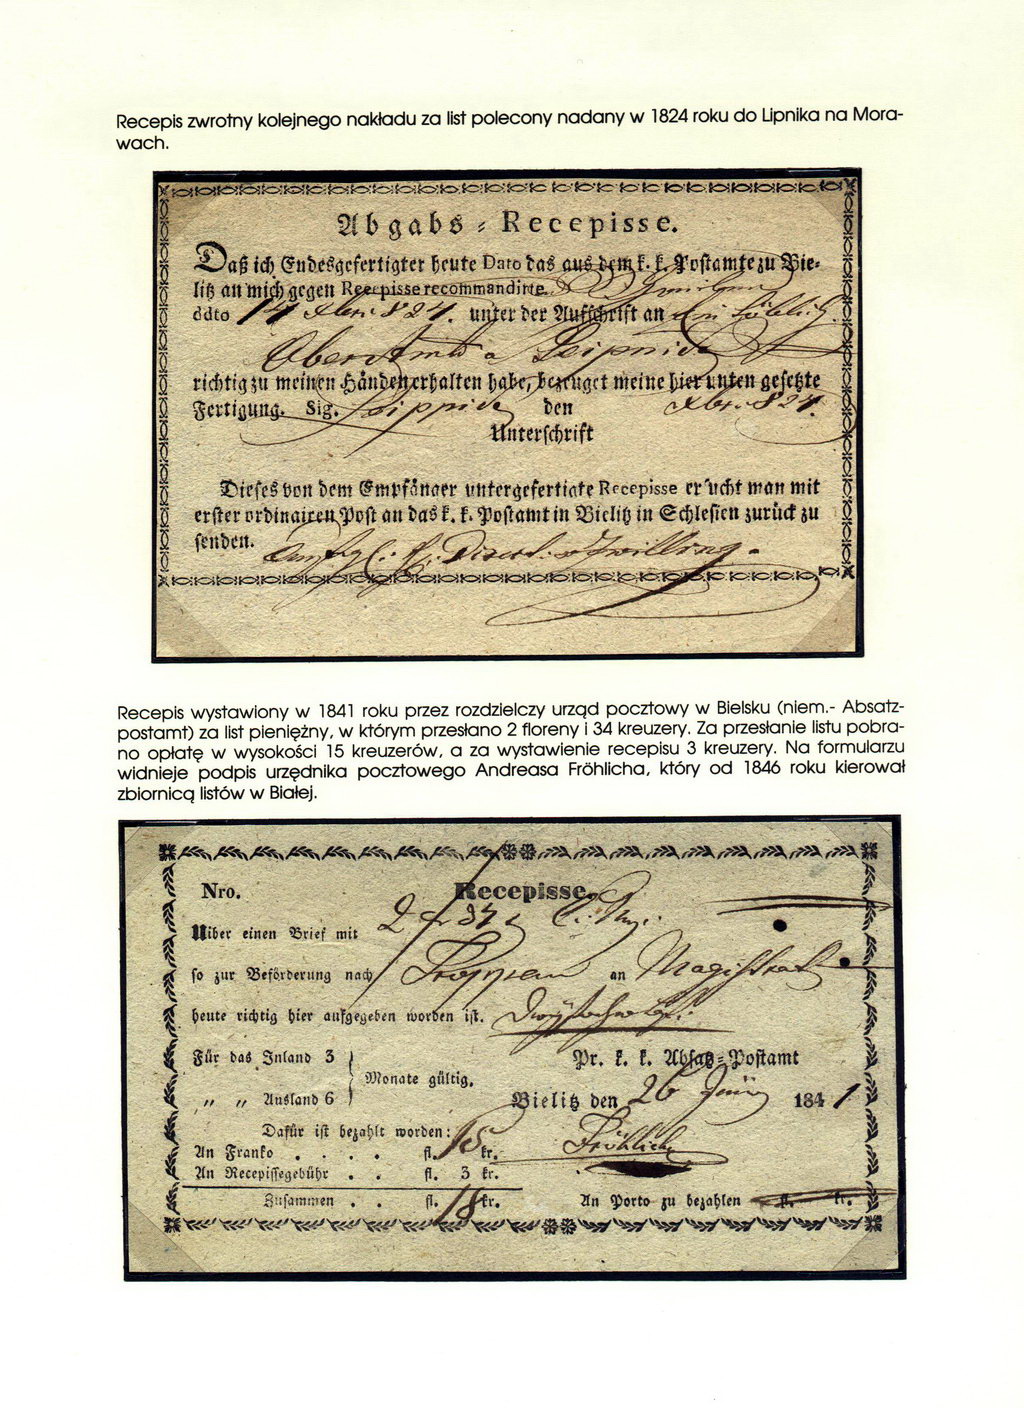 Recepis zwrotny kolejnego nakładu za list polecony nadany w 1824 roku do Lipnika na Mora-
wach.
Abgabs = Recepisse.
Daß ich Endesgefertigter heute Dato das aus dem k. k. Postamte zu Bie-
litz an mich gegen Recepisse recommandirte
ddto 14 Xbri 824. unter der Aufschrift an Löbliche
Oberamt a Leipnick
richtig zu meinen Händen erhalten habe, bezeuget meine hier unten gesetzte
Fertigung. Sig. Leippnick den Xbri 824.
Unterschrift
Dieses von dem Empfänger untergefertigte Recepisse er ucht man mit
erster ordinairen Post an das k. k. Postamt in Bielitz in Schlesien zurück zu
senden.
Recepis wystawiony w 1841 roku przez rozdzielczy urząd pocztowy w Bielsku (niem.- Absatz-
postamt) za list pieniężny, w którym przesłano 2 floreny i 34 kreuzery. Za przesłanie listu pobra-
no opłatę w wysokości 15 kreuzerów, a za wystawienie recepisu 3 kreuzery. Na formularzu
widnieje podpis urzędnika pocztowego Andreasa Fröhlicha, który od 1846 roku kierował
zbiornicą listów w Białej.
Nro. Recepisse
Uiber einen Brief mit 2 fr 34 x C. Mz.
so zur Beförderung nach Troppau an Magistrat
heute richtig hier aufgegeben worden ist.
Für das Inland 3
Monate gültig.
„ „ Ausland 6
Pr. k. k. Absatz=Postamt
Bielitz den 26 Juni 1841
Dafür ist bezahlt worden:
An Franko . . . . fl. 15 kr.
Fröhlich
An Recepissegebühr . . fl. 3 kr.
Zusammen . . fl. 18 kr.
An Porto zu bezahlen fl. kr.